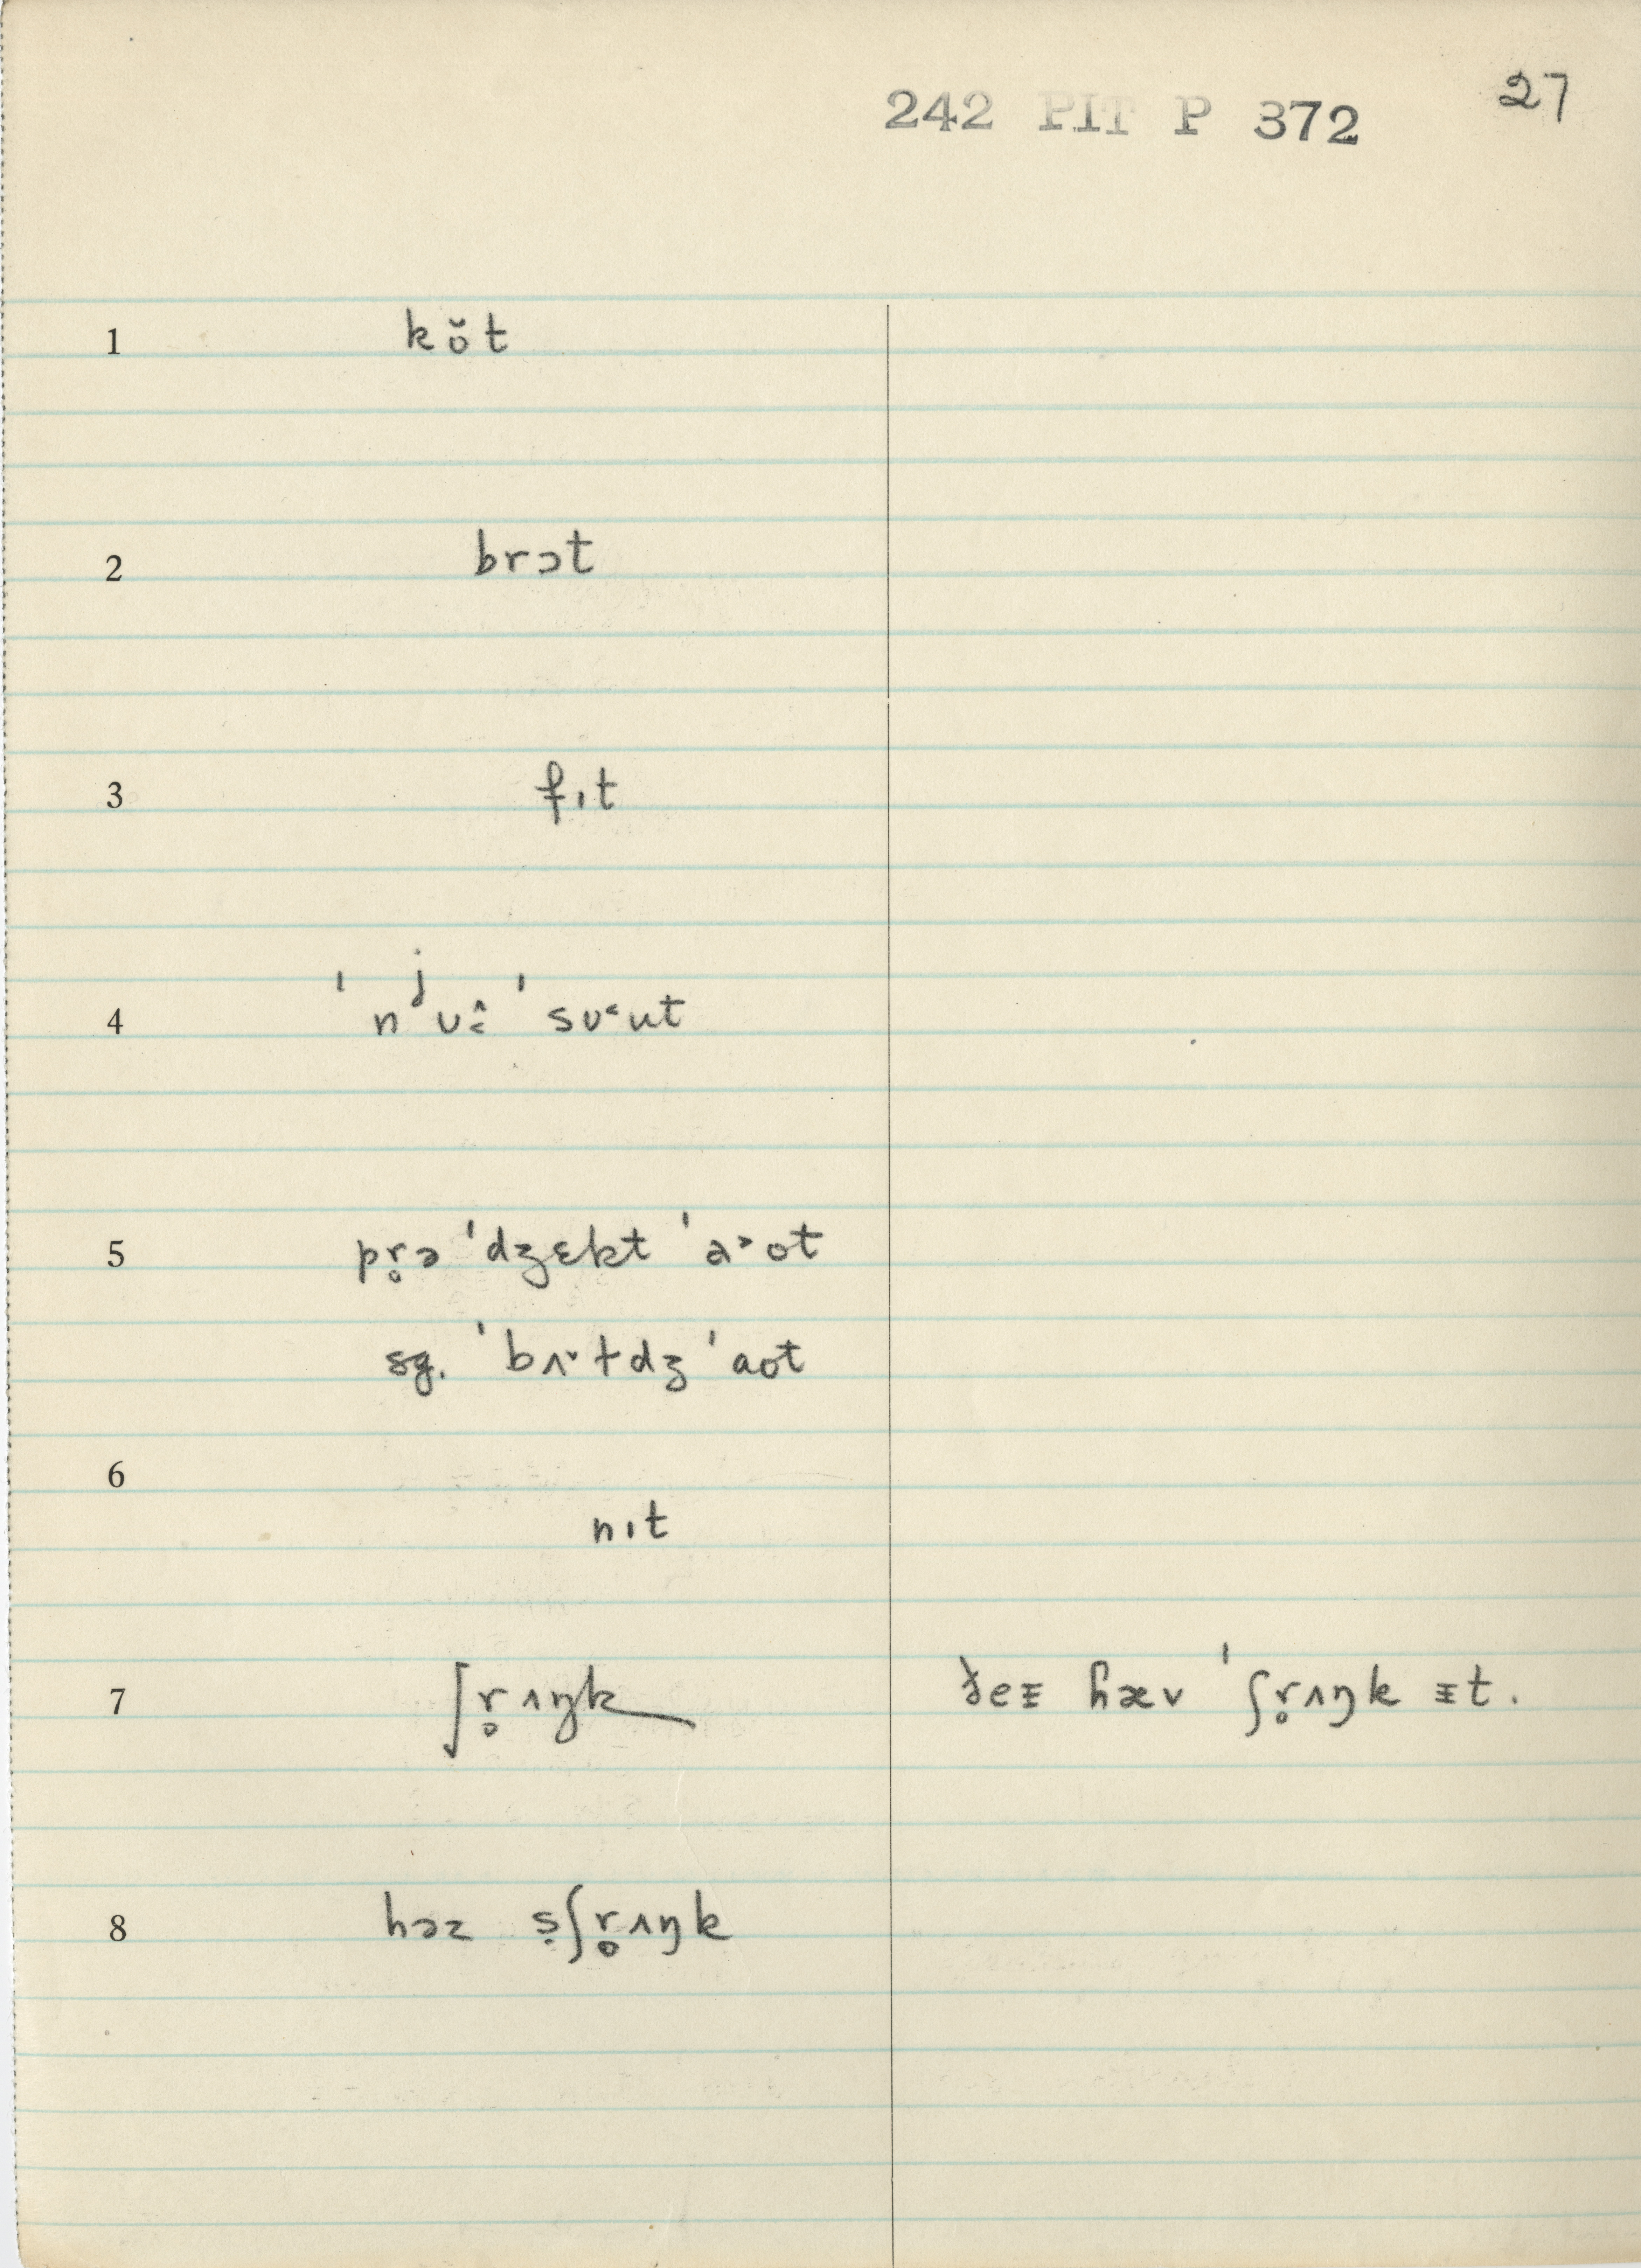 242 PIT P 372 27
1 kŏ̤t
2 brɔt
3 fɪt
4 ˈnʲʊ˂̂ ˈsʊ˂ut
5 pr̥ə ˈdʒɛkt ˈa˃ot
sg. ˈbʌ˅ɫdʒ ˈaot
6 nɪt
7 ʃr̥ʌŋk ðeᵻ ɦæv ˈʃr̥ʌŋk ᵻt.
8 həz ṣʃr̥ʌŋk